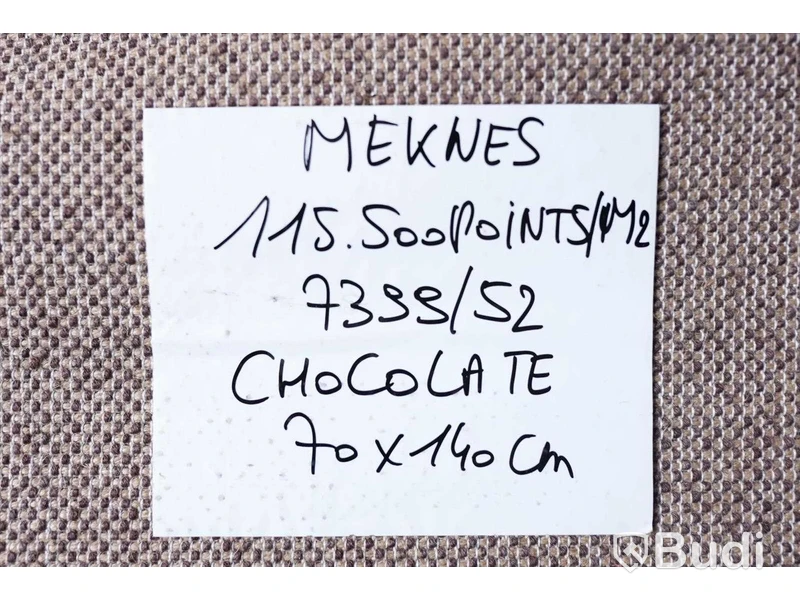 MEKNES
115.500 POINTS/M2
7399/52
CHOCOLATE
70 x 140 cm
Budi